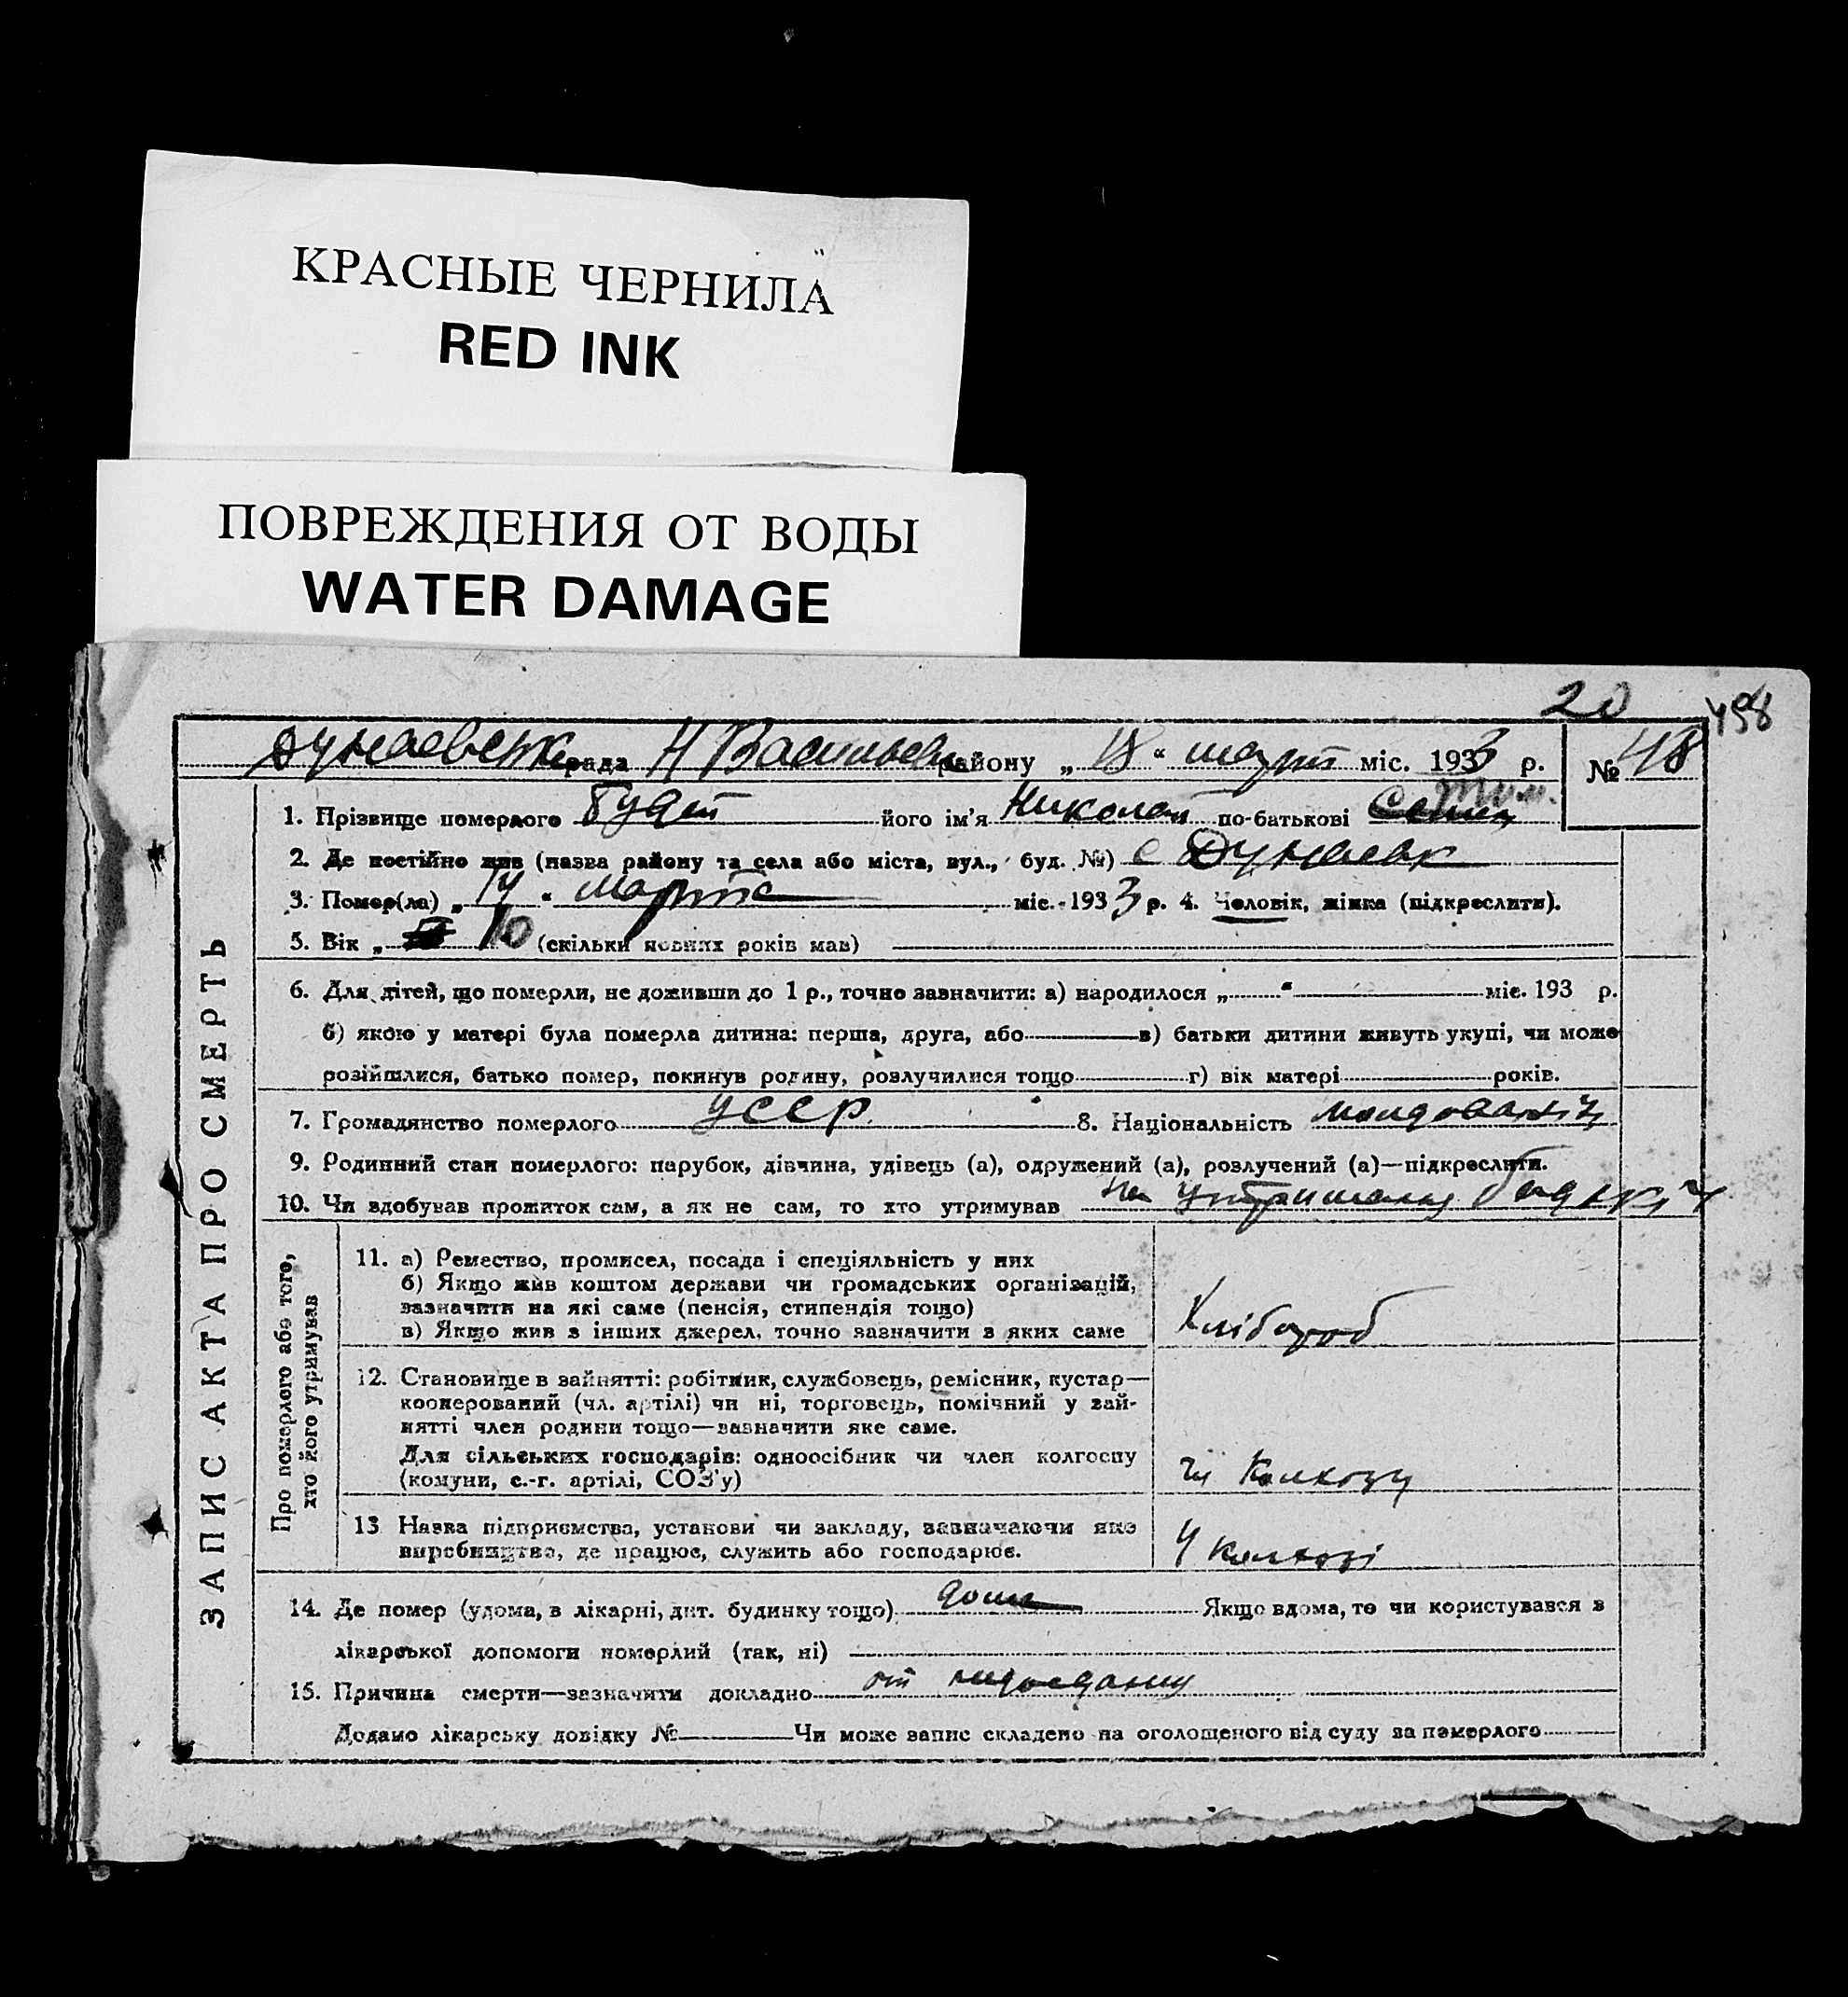 КРАСНЫЕ ЧЕРНИЛА
RED INK
ПОВРЕЖДЕНИЯ ОТ ВОДЫ
WATER DAMAGE
20
498
рада Н Васильев району „18 “ март міс. 1933 р. № 48
1. Прізвище померлого його ім'я Николай по-батькові
2. Де постійно жив (назва району та села або міста, вул., буд. №) с Дунаевк
3. Помер(ла) „14 “ марта міс. 1933 р. 4. Чоловік, жінка (підкреслити).
5. Вік „ 10 (скільки повних років мав)
ЗАПИС АКТА ПРО СМЕРТЬ
6. Для дітей, що померли, не доживши до 1 р., точно зазначити: а) народилося „ “ міс. 193 р.
б) якою у матері була померла дитина: перша, друга, або в) батьки дитини живуть укупі, чи може
розійшлися, батько помер, покинув родину, розлучилися тощо г) вік матері років.
7. Громадянство померлого УССР 8. Національність
9. Родинний стан померлого: парубок, дівчина, удівець (а), одружений (а), розлучений (а)—підкреслити.
10. Чи здобував прожиток сам, а як не сам, то хто утримував На утриманню батьків
Про померлого або того,
хто його утримував
11. а) Ремество, промисел, посада і спеціяльність у них
б) Якщо жив коштом держави чи громадських організацій,
зазначити на які саме (пенсія, стипендія тощо)
в) Якщо жив з інших джерел, точно зазначити з яких саме
Хлібороб
12. Становище в зайнятті: робітник, службовець, ремісник, кустар—
кооперований (чл. артілі) чи ні, торговець, помічний у зай-
нятті член родини тощо—зазначити яке саме.
Для сільських господарів: одноосібник чи член колгоспу
(комуни, с.-г. артілі, СОЗ'у)
чл Колхозу
13 Назва підприємства, установи чи закладу, зазначаючи яке
виробництво, де працює, служить або господарює.
У колхозі
14. Де помер (удома, в лікарні, дит. будинку тощо) дома Якщо вдома, то чи користувався з
лікарської допомоги померлий (так, ні)
15. Причина смерти—зазначити докладно от недоедания
Додамо лікарську довідку № Чи може запис складено на оголошеного від суду за померлого